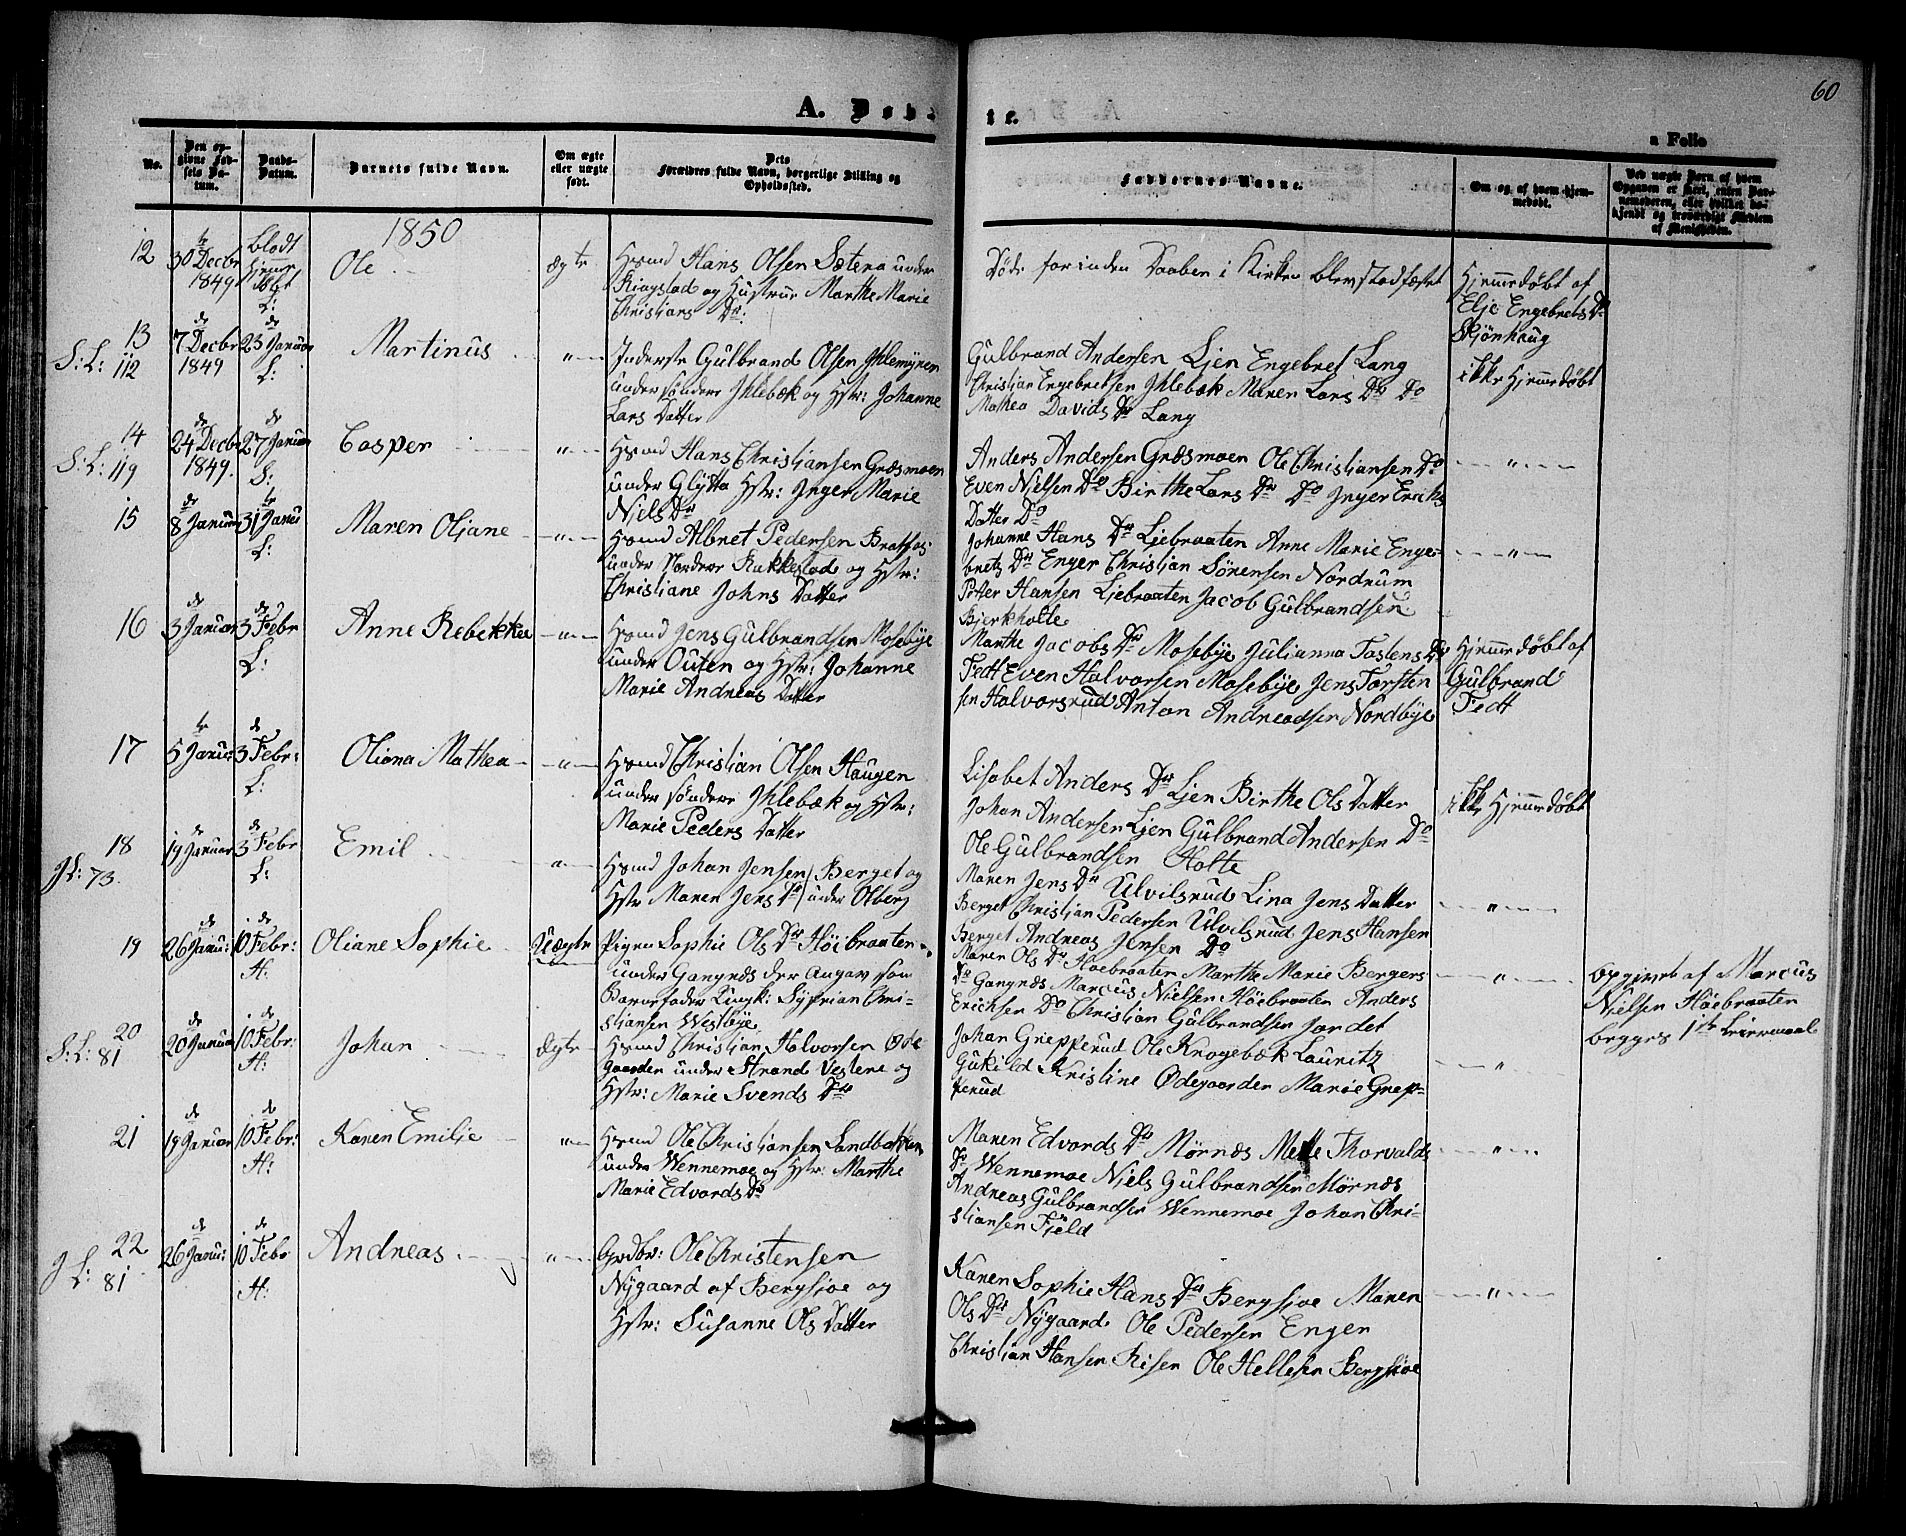 60
A. Døbte.
a Folio
No.
Den opgivne Fødsels Datum.
Daabs-Datum.
Barnets fulde Navn.
Om ægte eller uægte født.
Dets Forældres fulde Navn, borgerlige Stilling og Opholdssted.
Faddernes Navne.
Om og af hvem hjemmedøbt.
Ved uægte Børn af hvem Opgaven er skeet, enten Barnemoderen, eller hvilket bekjendt og troværdigt Medlem af Menigheden.
1850
12
30 Decbr 1849
Blodt Hjemme døbt L:
Ole
ægte
Hsmd Hans Olsen Sætera under
Ringstad og Hustrue Marthe Marie
Christians Dr:
Døde forinden Daaben i Kirken blev stadfæstet
Hjemmedøbt af
Elje Engebrets Dr
Skjønhaug
13
S: L: 112
de 7 Decbr 1849
de 23 Januar L:
Martinus
"
Inderste Gulbrand Olsen Ihlemyren
under søndere Ihlebæk og Hstr: Johanne
Lars Datter
Gulbrand Andersen Ljen Engebret Lang
Christian Engebretsen Ihlebæk Maren Lars Dr Do
Mathea Davids Dr Lang
ikke Hjemmedøbt
14
S: L: 119
de 24 Decbr 1849.
de 27 Januar S:
Casper
"
Hsmd Hans Christiansen Græsmoen
under Glytta Hstr: Inger Marie
Niels Dr
Anders Andersen Græsmoen Ole Christiansen Do
Even Nielsen Do Birthe Lars Dr Do Inger Erichs
Datter Do
"
15
de 8 Januar
31 Janu L:
Maren Oliane
"
Hsmd Albret Pedersen Bratfos
under Nordere Rakkestad og Hstr:
Christiane Johns Datter
Johanne Hans Dr Ljebraaten Anne Marie Enge-
brets Dr Enger Christian Sörensen Nordrum
Petter Hansen Ljebraaten Jacob Gulbrandsen
Bjerkholte
"
16
de 3 Januar
de 3 Febr L:
Anne Rebekka
"
Hsmd Jens Gulbrandsen Mosebye
under Outen og Hstr: Johanne
Marie Andreas Datter
Marthe Jacobs Dr Mosebye Julianna Tostens Dr
Fedt Even Halvorsen Mosebye Jens Torsten
sen Halvorsrud Anton Andreadsen Nordbye
Hjemmedøbt af
Gulbrand
Fedt
17
5 Janu:
de 3 Febr: L:
Oliana Mathea
"
Hsmd Christian Olsen Haugen
under søndere Ihlebæk og Hstr:
Marie Peders Datter
Lisabet Anders Dr Ljen Birthe Ols Datter
Johan Andersen Ljen Gulbrand Andersen Do
Ole Gulbrandsen Holte
ikke Hjemmedøbt
18
J L: 73.
de 19 Januar
de 3 Febr L:
Emil
"
Hsmd Johan Jensen Berget og
Hstr Maren Jens Dr under Olberg
Maren Jens Dr Ulvilsrud Lina Jens Datter
Berget Christian Pedersen Ulvilsrud Jens Hansen
Berget Andreas Jensen Do
"
19
de 26 Janu:
de 10 Febr: H:
Oliane Sophie
Uægte
Pigen Sophie Ols Dr Höiebraaten
under Gangnæs der angav som
Barnefader Ungk: Syprian Chri-
stiansen Westbye
Maren Ols Dr Höebraaten Marthe Marie Bergers
Dr Gangnæs Marcus Nielsen Höebraaten Anders
Erichsen Do Christian Gulbrandsen Jordet
"
Opgivet af Marcus
Nielsen Höebraaten
begges 1ste Leiermaal
20
S: L: 81
de 20 Januar
de 10 Febr: H:
Johan
Ægte
Hsmd Christian Halvorsen Öde-
gaarden under Strand Vestere og
Hstr: Marie Svends Dr
Johan Grepperud Ole Krogebæk Lauritz
Gukild Kristine Ödegaarden Marie Grep-
perud
"
21
de 19 Januar
de 10 Febr: H:
Karen Emilie
"
Hsmd Ole Christiansen Sandbakken
under Wennemoe og Hstr: Marthe
Marie Edvards Dr
Maren Edvards Dr Mörnæs Mette Thorvalds
Dr Wennemoe Niels Gulbrandsen Mörnæs
Andreas Gulbrandsen Wennemoe Johan Chri-
stiansen Field
"
22
J L: 81
de 26 Janu:
de 10 Febr H:
Andreas
"
Grdbr: Ole Christensen
Nygaard af Bergsjoe og
Hstr: Susanne Ols Datter
Karen Sophie Hans Dr Bergsjoe Maren
Ols Dr Nygaard Ole Pedersen Enger
Christian Hansen Risen Ole Hellesen Bergsjoe
"